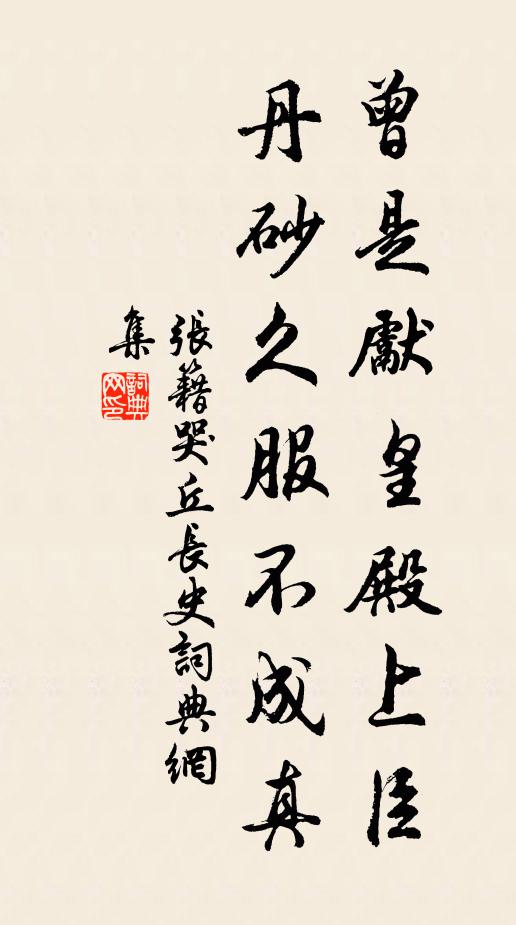 曾是獻皇殿上臣
丹砂久服不成真
張籍哭丘長史詞典網
集
詞典
网印